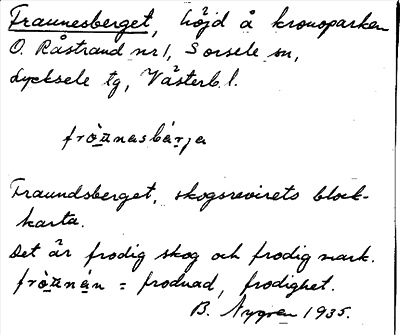 Fraunesberget, höjd å kronoparken
Ö. Råstrand nr 1, Sorsele sn,
Lycksele tg, Västerb. l.
fròu̯nasbár̯ja
Fraundsberget, skogsrevirets block-
karta.
Det är frodig skog och frodig mark.
fròu̯nán = frodnad, frodighet.
B. Nygren 1935.